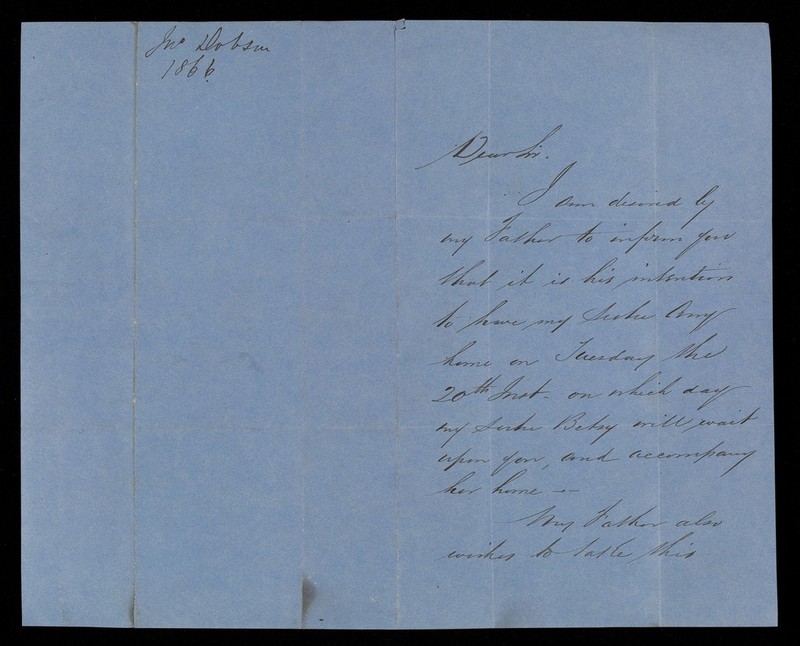 Jno Dobson
1866
Dear Sir.
I am desired by
my Father to inform you
that it is his intention
to have my Sister Amy
home on Tuesday the
20th Inst - on which day
my Sister Betsy will wait
upon you, and accompany
her home —
My Father also
wishes to take this